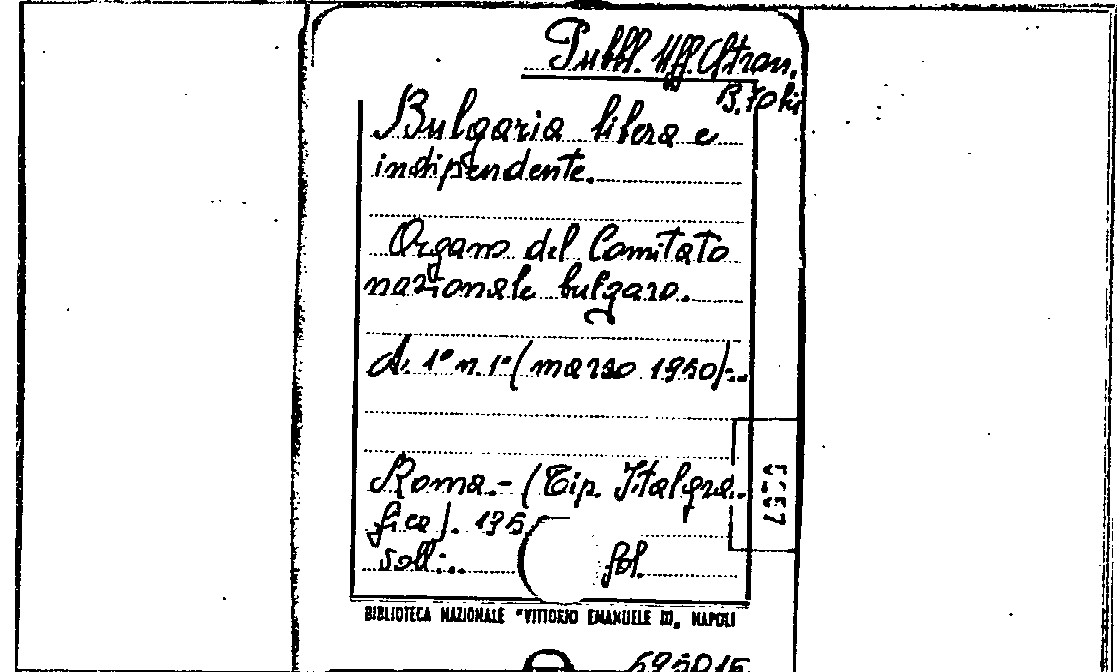 Pubbl. Uff. Stran.
B. 70
Bulgaria libera e
indipendente.
Organo del Comitato
nazionale bulgaro.
A. 1° n. 1° (marzo 1950)-..
Roma.- (Tip. Italgra-
fica). 195
soll:.. fol.
BIBLIOTECA NAZIONALE "VITTORIO EMANUELE III„ NAPOLI
595015